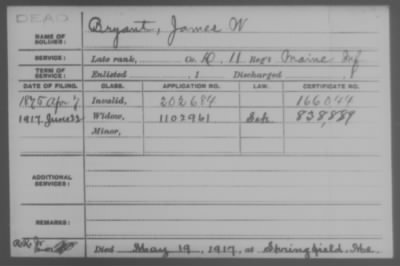 DEAD
NAME OF SOLDIER: Bryant, James W
SERVICE: Late rank, Co. K, 11 Reg't Maine Inf
TERM OF SERVICE: Enlisted , 1 Discharged , 1
DATE OF FILING. CLASS. APPLICATION NO. LAW. CERTIFICATE NO.
1875, Apr 7 Invalid, 202684 166044
1917, June 22 Widow, 1102961 838,889
Minor,
ADDITIONAL SERVICES:
REMARKS:
Died May 19, 1917, at Springfield, Me.